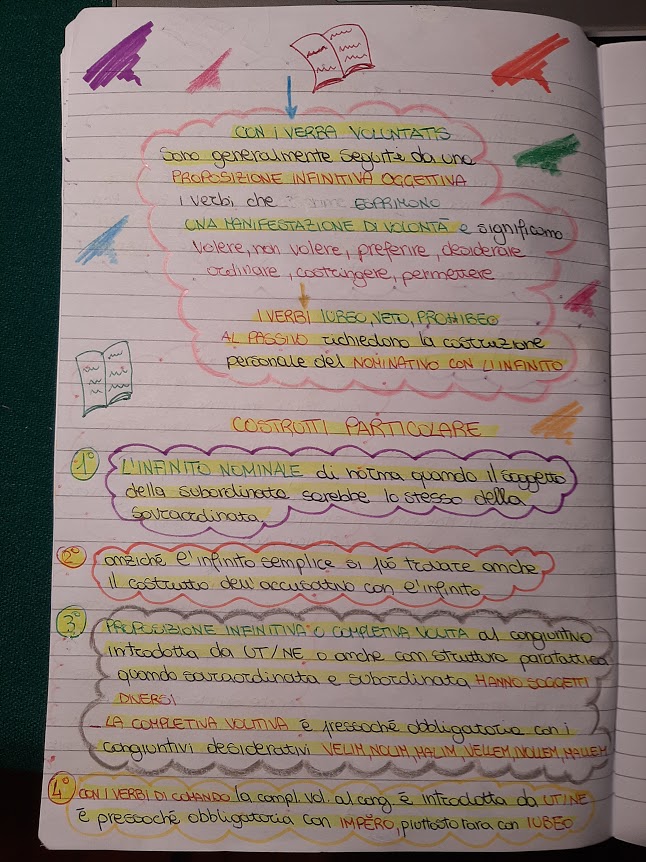 CON I VERBA VOLUNTATIS
Sono generalmente seguite da una
PROPOSIZIONE INFINITIVA OGGETTIVA
i verbi che ESPRIMONO
UNA MANIFESTAZIONE DI VOLONTÀ e significano
volere, non volere, preferire, desiderare
ordinare, costringere, permettere
I VERBI IUBEO, VETO, PROHIBEO
AL PASSIVO richiedono la costruzione
personale del NOMINATIVO CON L'INFINITO
COSTRUTTI PARTICOLARE
1° L'INFINITO NOMINALE di norma quando il soggetto
della subordinata sarebbe lo stesso della
sovraordinata
2° anziché l'infinito semplice si può trovare anche
il costrutto dell'accusativo con l'infinito
3° PROPOSIZIONE INFINITIVA O COMPLETIVA VOLITIVA al congiuntivo
introdotta da UT/NE o anche con struttura paratattica
quando sovraordinata e subordinata HANNO SOGGETTI
DIVERSI
- LA COMPLETIVA VOLITIVA è pressoché obbligatoria con i
congiuntivi desiderativi VELIM, NOLIM, MALIM, VELLEM, NOLLEM, MALLEM
4° CON I VERBI DI COMANDO la compl. vol. al cong. è introdotta da UT/NE
è pressoché obbligatoria con IMPĔRO, piuttosto rara con IUBEO